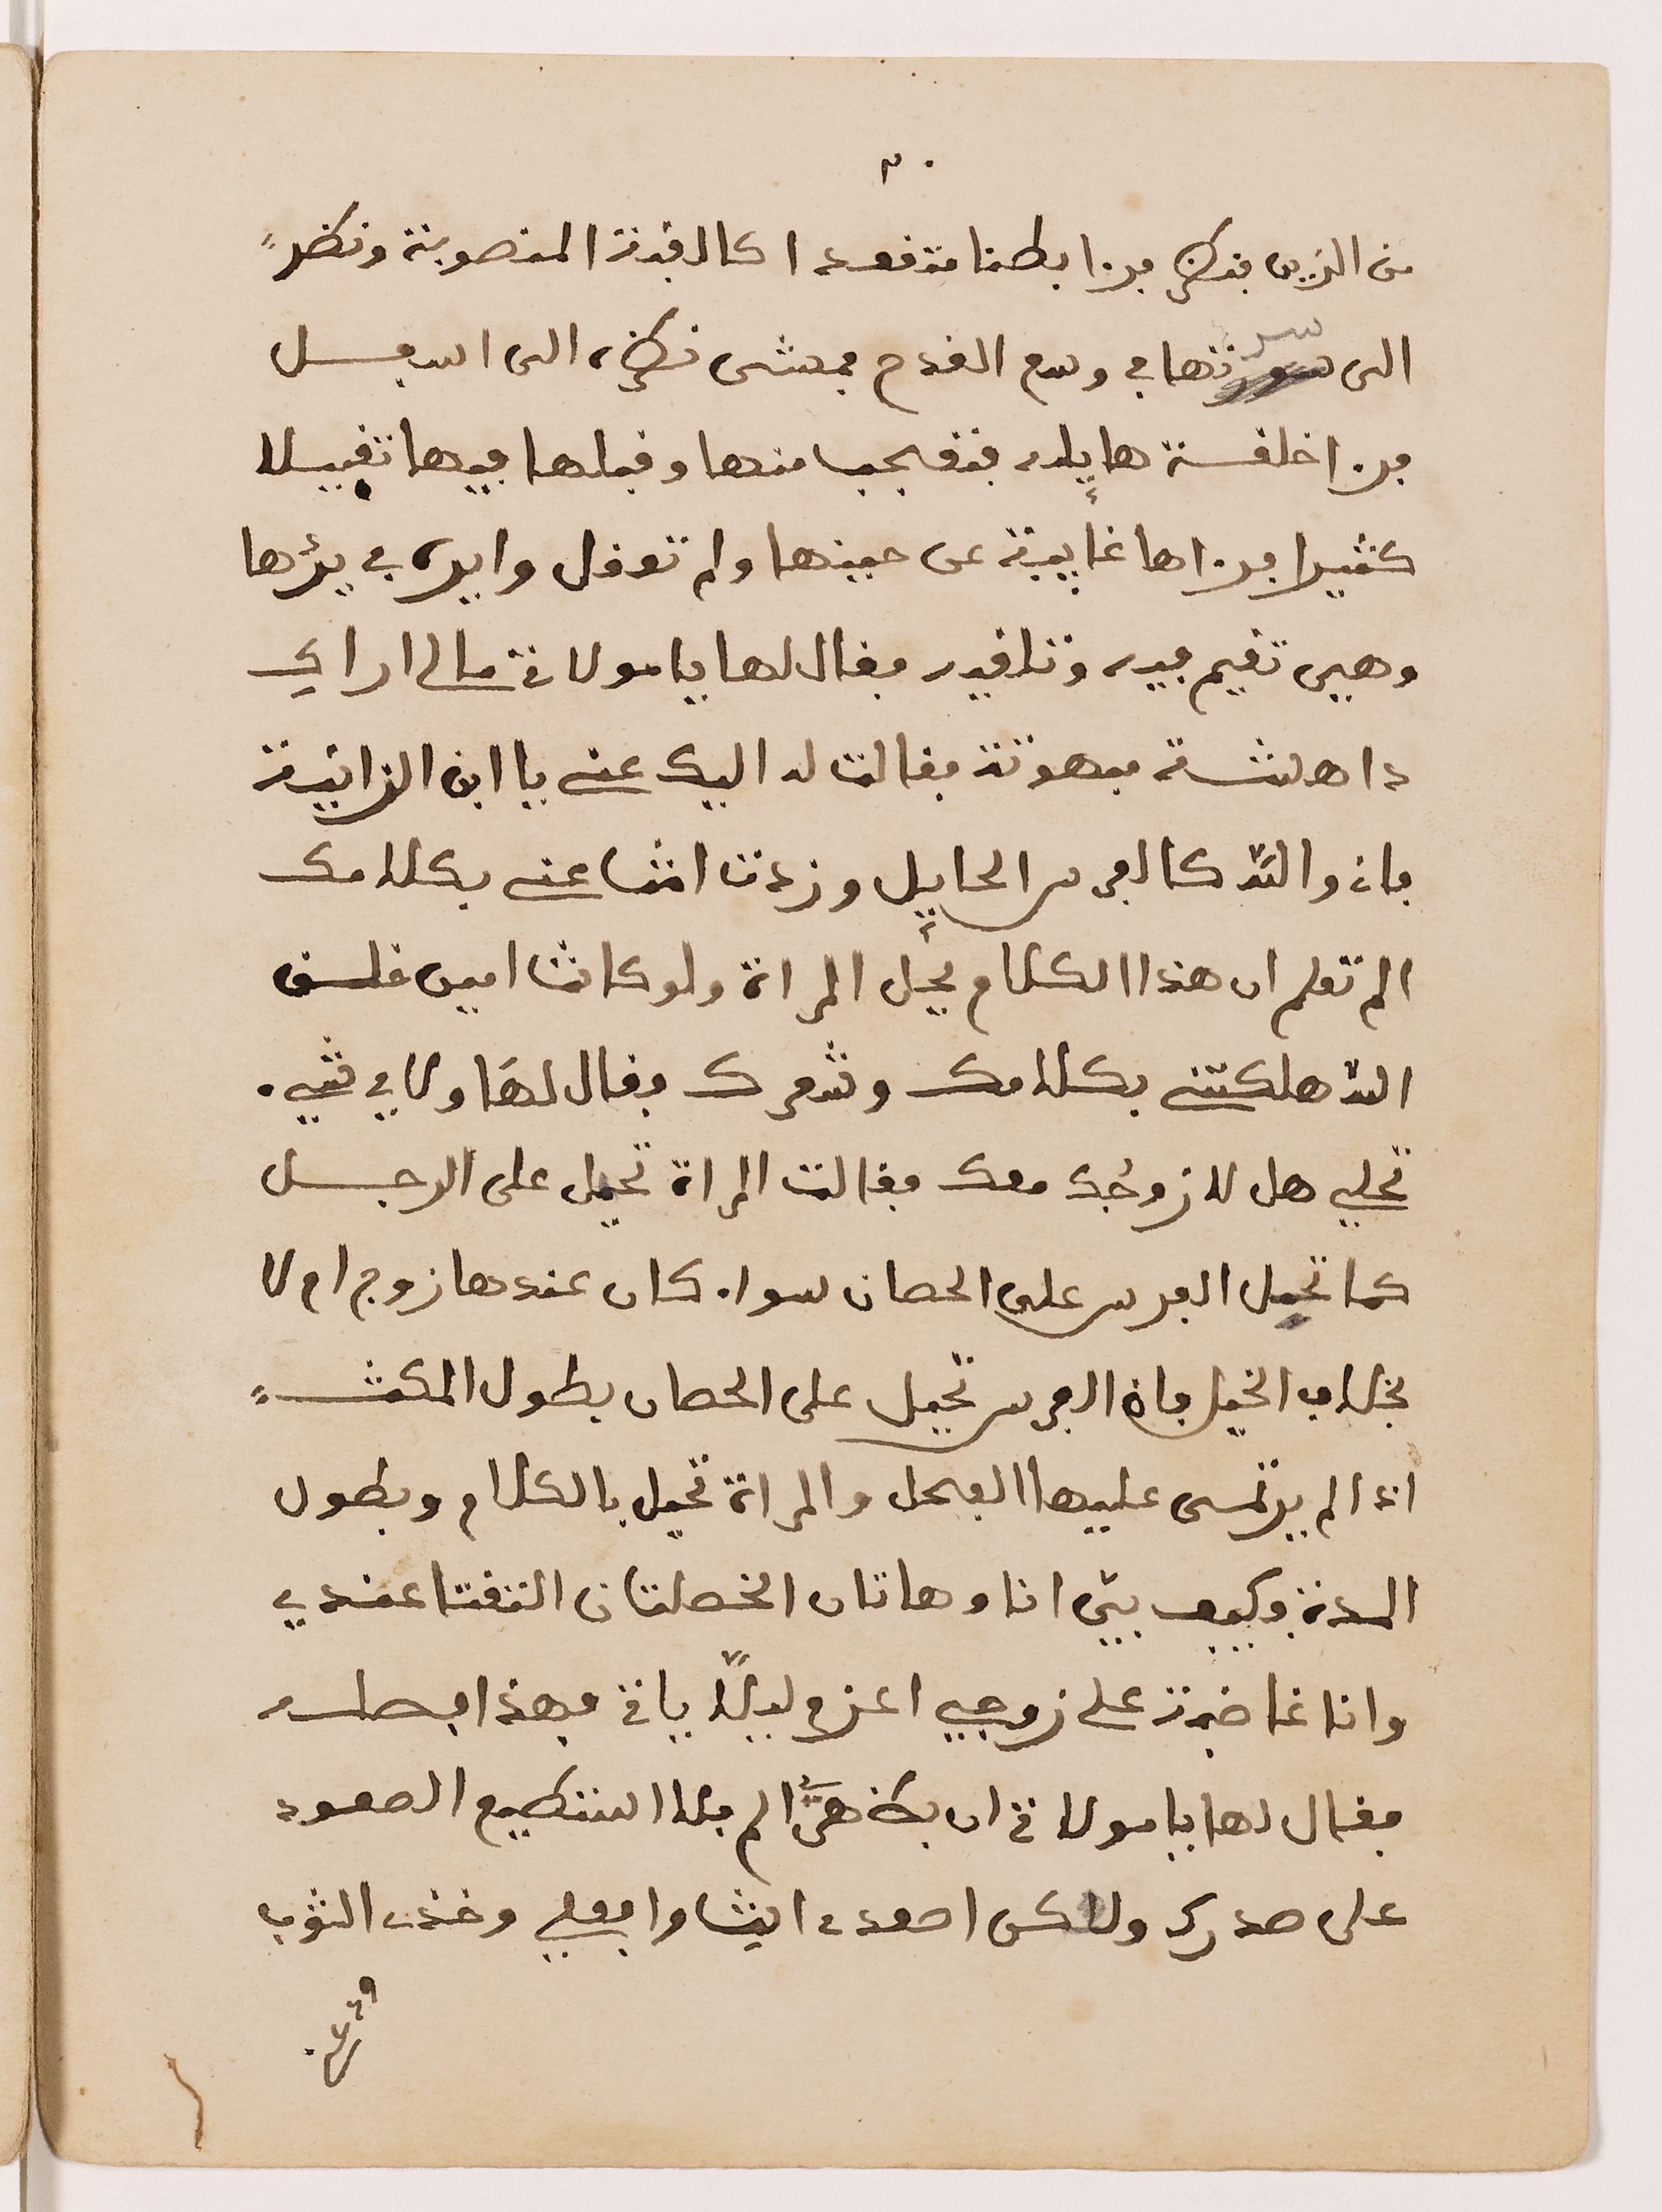 ٣٠
من الزين فنظر فرءا بطنا منعقدا كالقبة المنصوبة ونظر
الى سرتها في وسع القدح فمشى نظره الى اسفل
فرءا خلقة هايلة فتعجب منها وقبلها فيها تقبيلا
كثيرا فرءاها غايبة عن حينها ولم تعقل وايره في يدها
وهيى تقيم فيه وتلاقيه فقال لها يا مولاة مالى اراك
داهشة مبهوتة فقالت له اليك عني يا ابن الزانية
فان والله كالفرس الحايل وزدت انت عني بكلامك
الم تعلم ان هذا الكلام يحيل المراة ولو كانت امين خلق
الله هلكتني بكلامك وشعرك فقال لها ولاي شيء
تحلي هل لا زوجك معك فقالت المراة تحيل على الرجل
كما تحيل الفرس على الحصان سواء كان عندها زوج ام لا
بخلاف الخيل فان الفرس تحيل على الحصان بطول المكث
اذا لم يرتمى عليها الفحل والمراة تحيل بالكلام وبطول
المدة وكيف بيّ انا وهاتان الخصلتان التقتا عندي
وانا غاضبة على زوجي اعزم ليلا ياق فهذا فصله
فقال لها يا مولاة ان بظهري الم فلا استطيع الصعود
على صدرك ولاكن اصعدي انت وافعلي وخذي الثوب